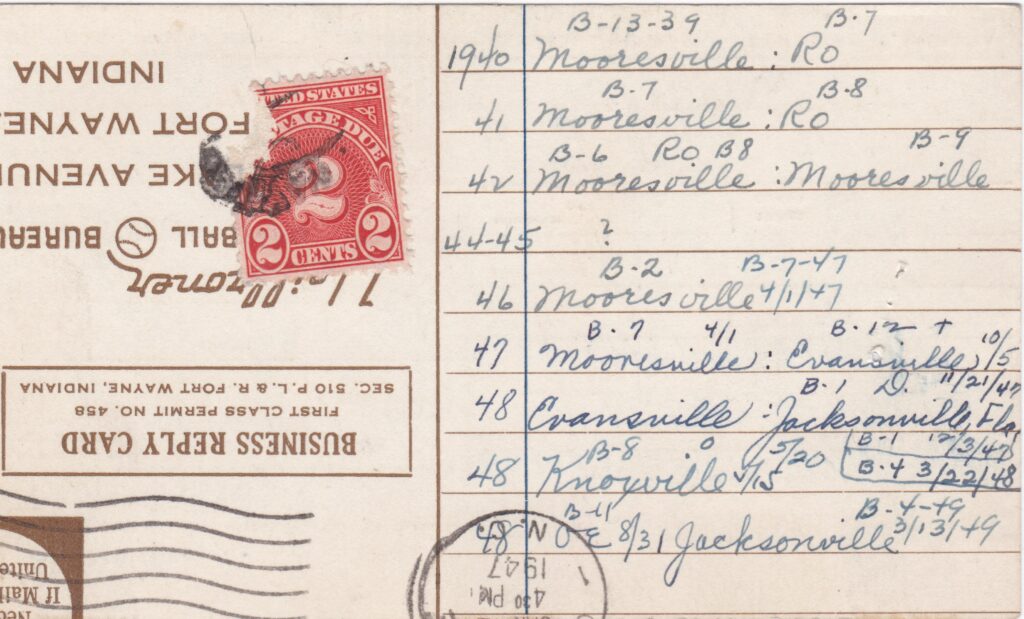 B-13-39 B-7
1940 Mooresville : RO
B-7 B-8
41 Mooresville : RO
B-6 RO B8 B-9
42 Mooresville : Mooresville
44-45 ?
B-2 B-7-47
46 Mooresville 4/1/47
B-7 4/1 B-12 +
47 Mooresville : Evansville, 10/5
B-1 D. 11/21/47
48 Evansville : Jacksonville, Fla
B-1 12/3/47
B-4 3/22/48
B-8 0 5/20
48 Knoxville 7/15
B-11 B-4-49
48 O E 8/31 Jacksonville 3/13/49
N.C.
1
1947
4 30 PM
UNITED STATES
POSTAGE DUE
2
2 CENTS 2
BUSINESS REPLY CARD
FIRST CLASS PERMIT NO. 458
SEC. 510 P. L. & R. FORT WAYNE, INDIANA
BALL BUREAU
KE AVENUE
FORT WAYNE
INDIANA
Nec
If Mail
Unite